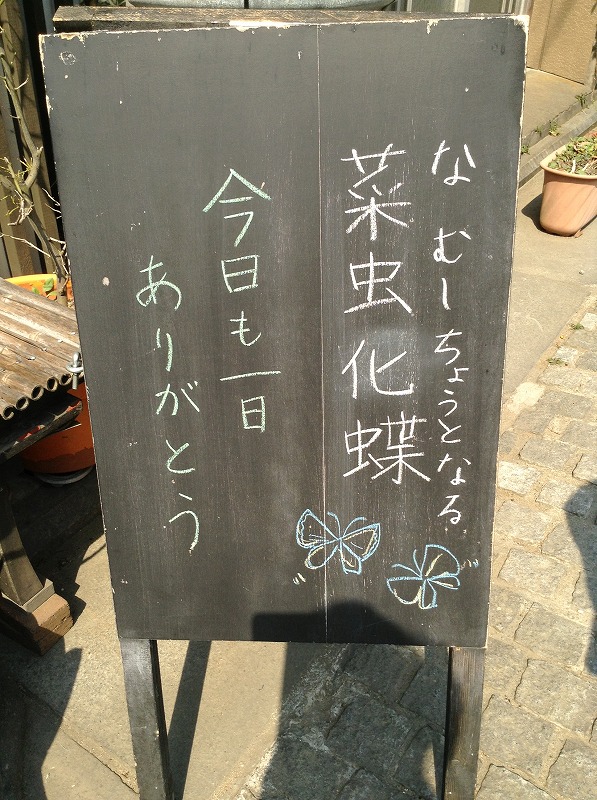 なむしちょうとなる
菜虫化蝶
今日も一日
ありがとう